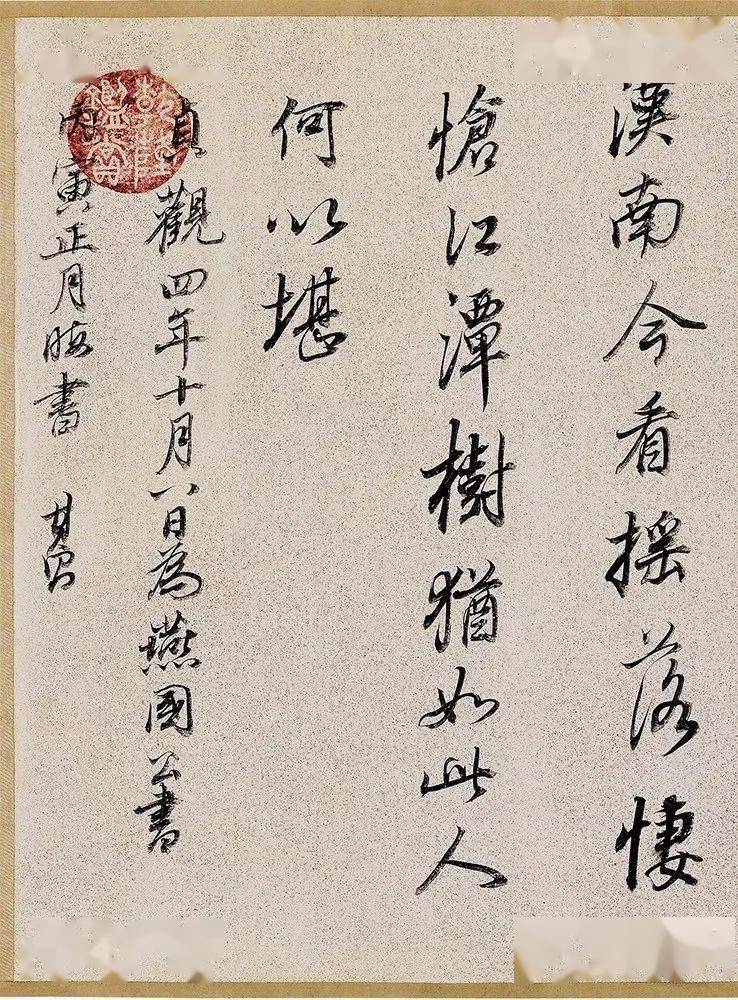 漢南今看搖落悽
愴江潭樹猶如此人
何以堪
貞觀四年十月八日為燕國公書
丙寅正月晦書